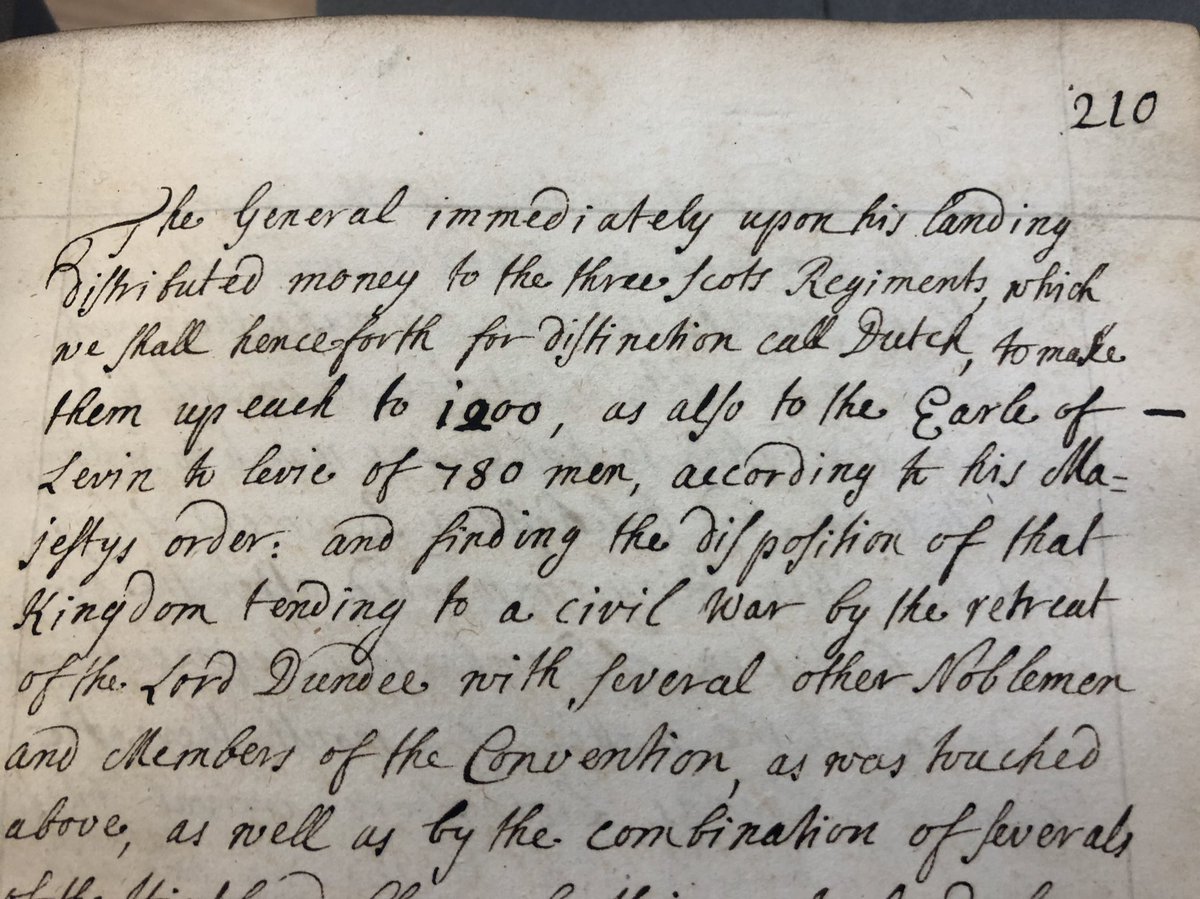 210
The General immediately upon his landing
distributed money to the three Scots Regiments, which
we shall henceforth for distinction call Dutch, to make
them up each to 1200, as also to the Earle of —
Levin to levie of 780 men, according to his Ma=
jestys order: and finding the disposition of that
Kingdom tending to a civil war by the retreat
of the Lord Dundee with several other Noblemen
and Members of the Convention, as was touched
above, as well as by the combination of severals
of the